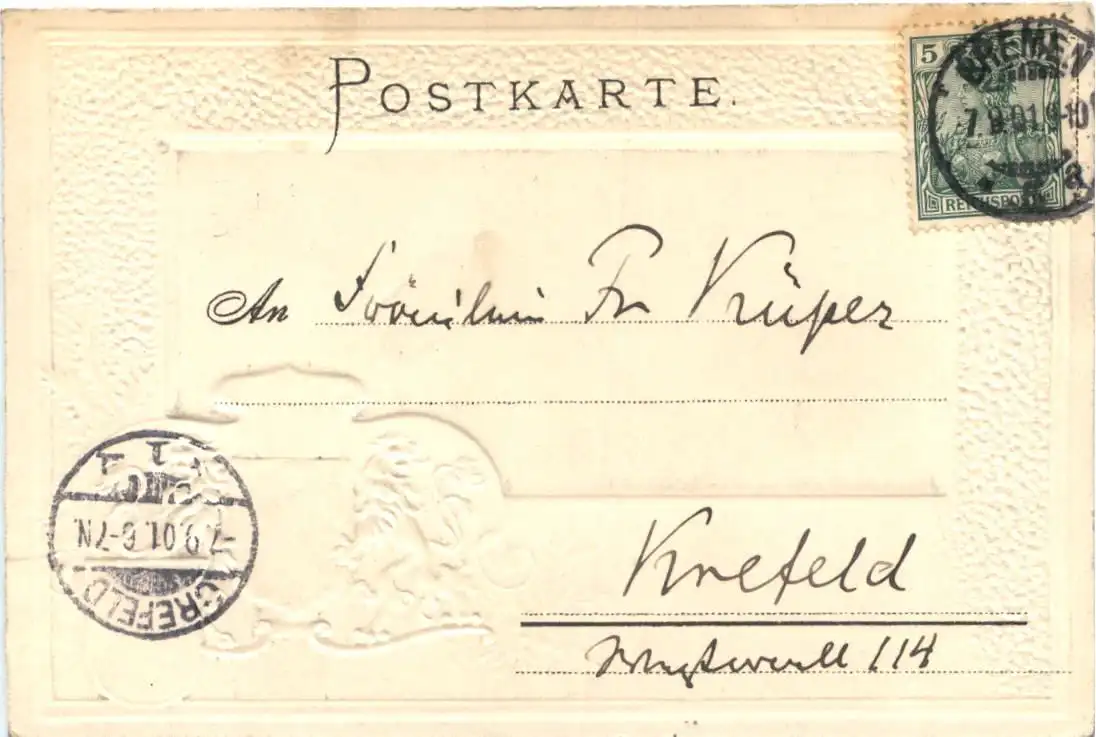 POSTKARTE.
5
REICHSPOST
BREMEN
7.9.01.9-10
An Fräulein Fr Küper
Krefeld
114
CREFELD
7.9.01.6-7N.